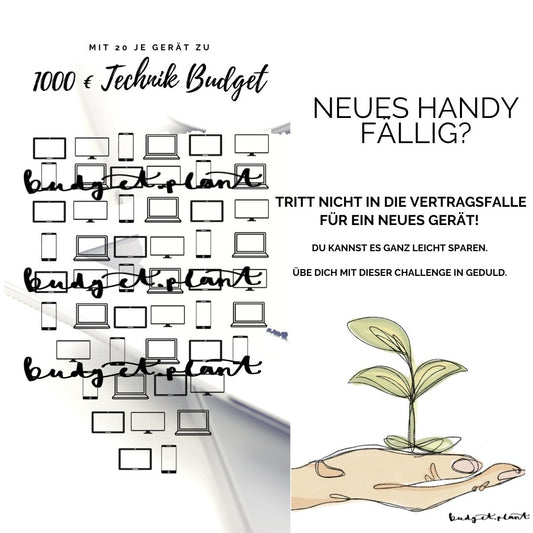 MIT 20 JE GERÄT ZU
1000 € Technik Budget
budget.plant
budget.plant
budget.plant
NEUES HANDY
FÄLLIG?
TRITT NICHT IN DIE VERTRAGSFALLE
FÜR EIN NEUES GERÄT!
DU KANNST ES GANZ LEICHT SPAREN.
ÜBE DICH MIT DIESER CHALLENGE IN GEDULD.
budget.plant